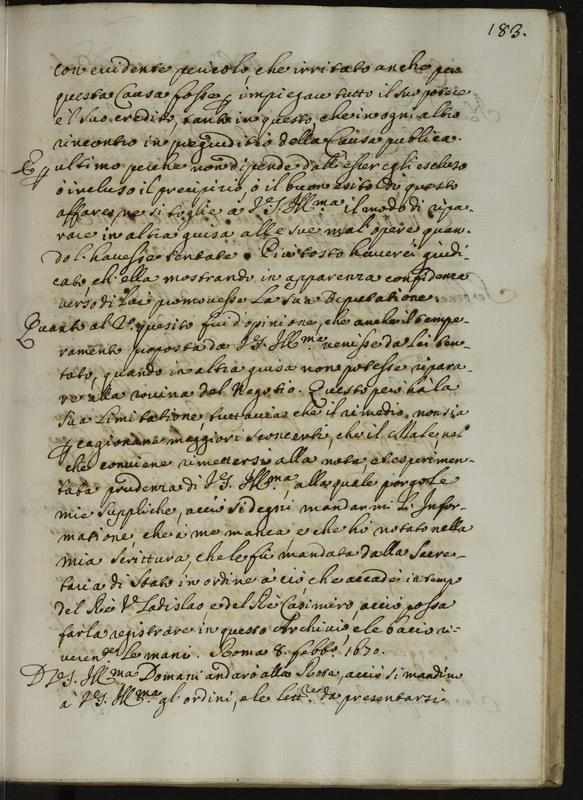 183.
con evidente pericolo, che irritato anche per
questa Causa fosse p impiegare tutto il suo potere
e 'l suo credito, tanto in questo, che in ogni altro
rincontro in pregiuditio della Causa publica.
E p ultimo perche non dipende dall' esser egli escluso
ò incluso il precipizio, ò il buon esito di questo
affare, ne si toglie à V.S. Ill.ma il modo di ripa-
rare in altra guisa alle sue mal' opere quan-
do l' havesse tentate. Piu tosto haverei giudi-
cato, ch' ella mostrando in apparenza confidenza
verso di Lui promovesse la sua Deputatione.
Quanto al 2.o quesito fui d'opinione, che anche il tempe-
ramento proposto da V.S. Ill.ma venisse da Lei ten-
tato, quando in altra guisa non potesse ripara-
re alla rovina del Negotio. Questo però hà la
sua Limitatione, tuttavia che il rimedio non sia
p cagionare maggiori sconcerti, che il Male, nel
che conviene rimettersi alla nota, et esperimen-
tata prudenza di V.S. Ill.ma, alla quale porgo le
mie suppliche, acciò si degni mandarmi l' Infor-
matione, che à me manca e che hò notato nella
mia scrittura, che le fù mandata dalla Secre-
taria di Stato in ordine à ciò, che accadè in tempo
del Rè Vladislao e del Rè Casimiro, acciò possa
farla registrare in questo Archivio, e le bacio ri-
veren.te le mani. Roma 8. febb.o 1670.
D V.S. Ill.ma Domani andarò alla Rosa, acciò si mandino
à V.S. Ill.ma gl' ordini, e le lett.re da presentarsi